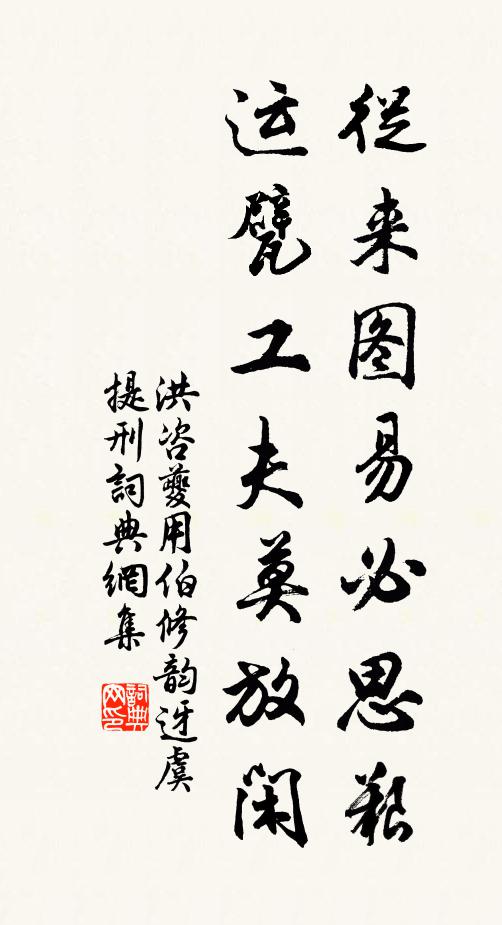 從来图易必思艱
运甓工夫莫放闲
洪咨夔用伯修韵迓虞
提刑詞典網集
詞典网印